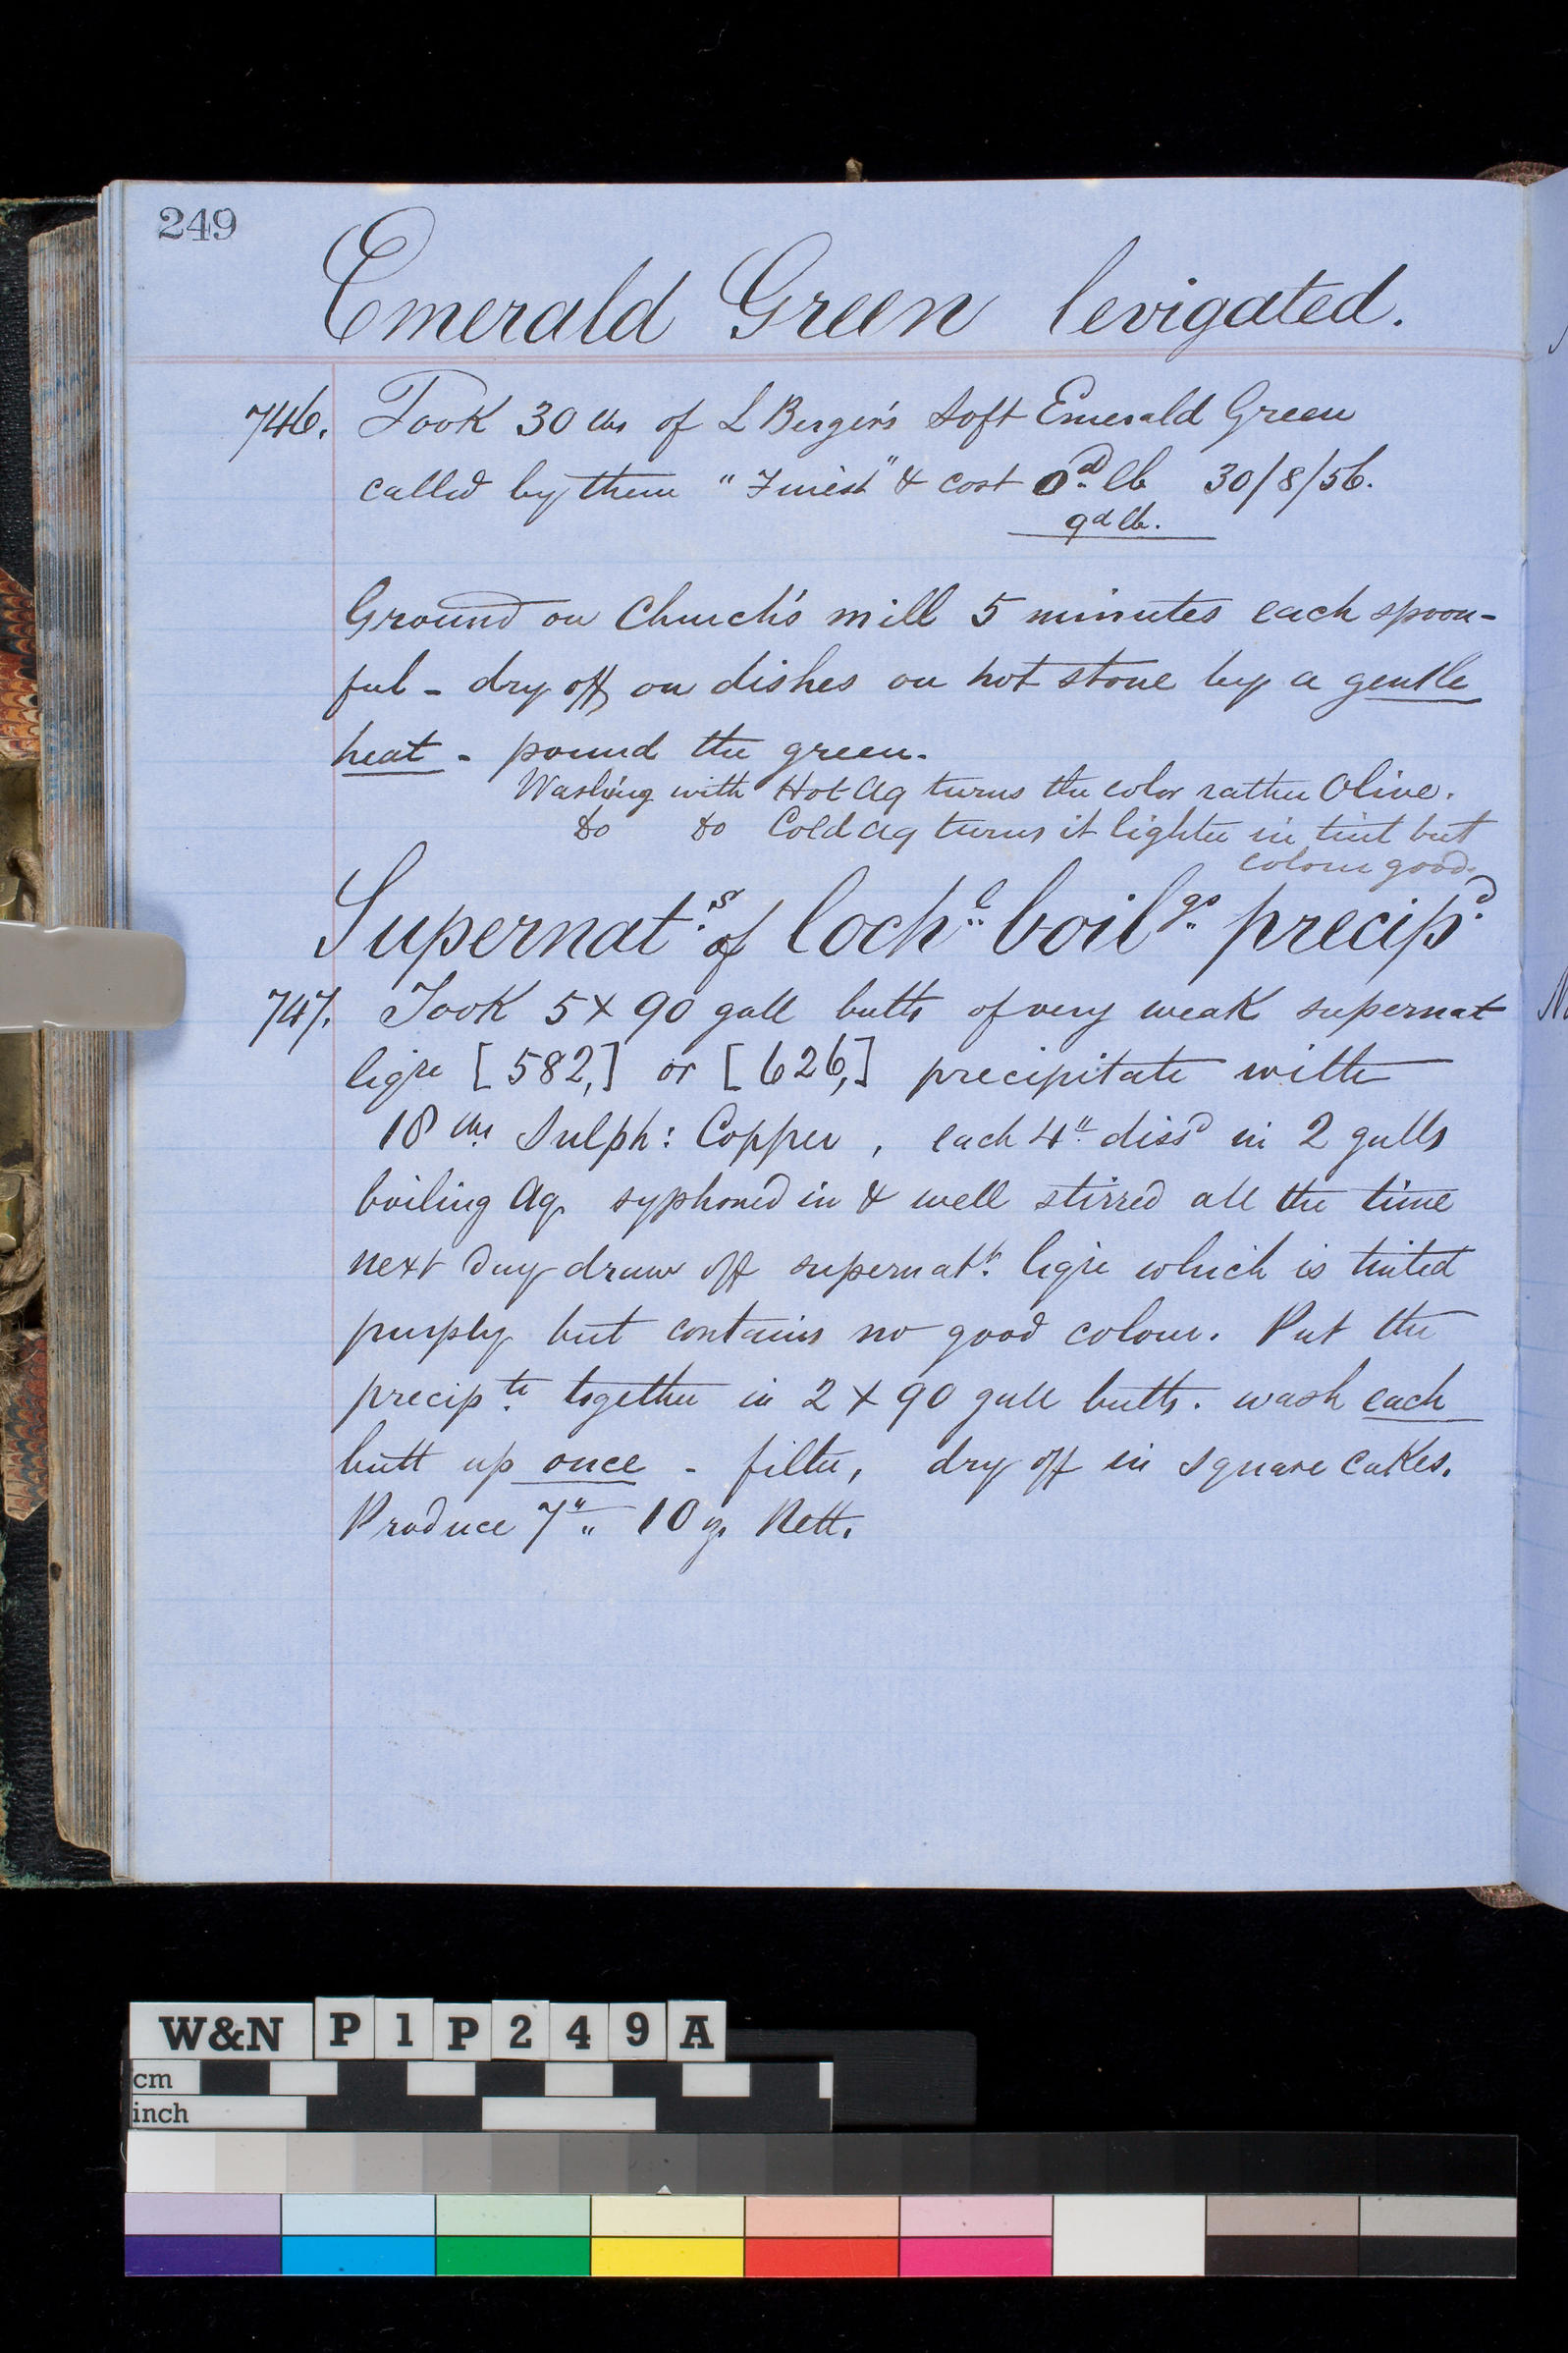 249
Emerald Green levigated.
746. Took 30 lbs of L Berger's Soft Emerald Green
called by them "Finest" & cost 0d lb 30/8/56.
9d lb.
Ground on Church's mill 5 minutes each spoon-
ful - dry off on dishes on hot stone by a gentle
heat - pound the green.
Washing with Hot Aq turns the color rather Olive.
Do Do Cold Aq turns it lighter in tint but
colour good.
Supernat:s of Loch:l boil:gs precip:d
747. Took 5 x 90 gall butts of very weak supernat
liqre [582,] or [626,] precipitate with
18 lbs Sulph: Copper, each 4" dissd in 2 galls
boiling Aq. syphoned in & well stirred all the time
next day draw off supernatt. liqre which is tinted
purply but contains no good colour. Put the
precip.te together in 2 x 90 gall butts. wash each
butt up once - filter, dry off in square cakes.
Produce 7" " 10 z. Nett.
W&N P1P249A
cm
inch